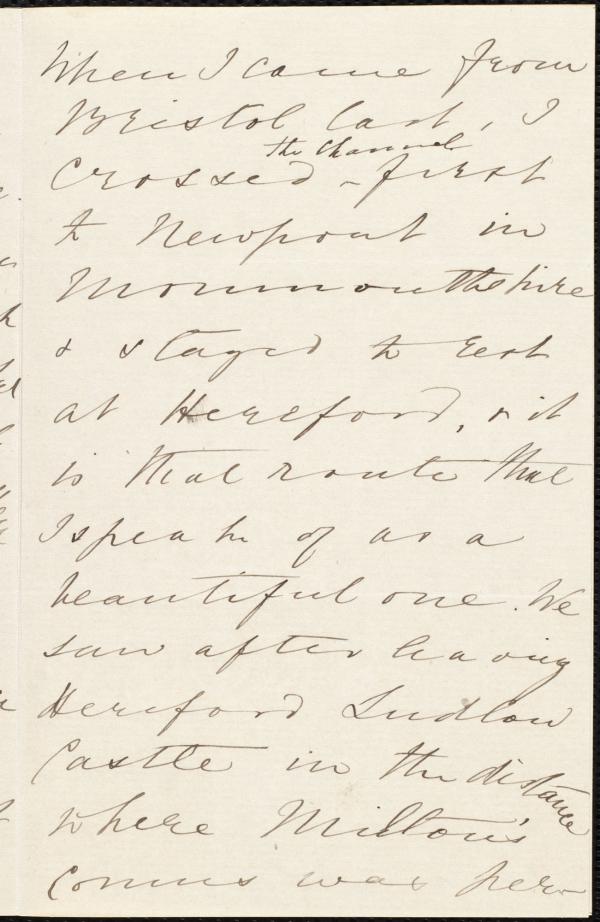 When I came from
Bristol last, I
the Channel
crossed - first
to Newport in
Monmouthshire
& stayed to rest
at Hereford, & it
is that route that
I speak of as a
beautiful one. We
saw after leaving
Hereford Ludlow
Castle in the distance
where Milton's
Comus was per-